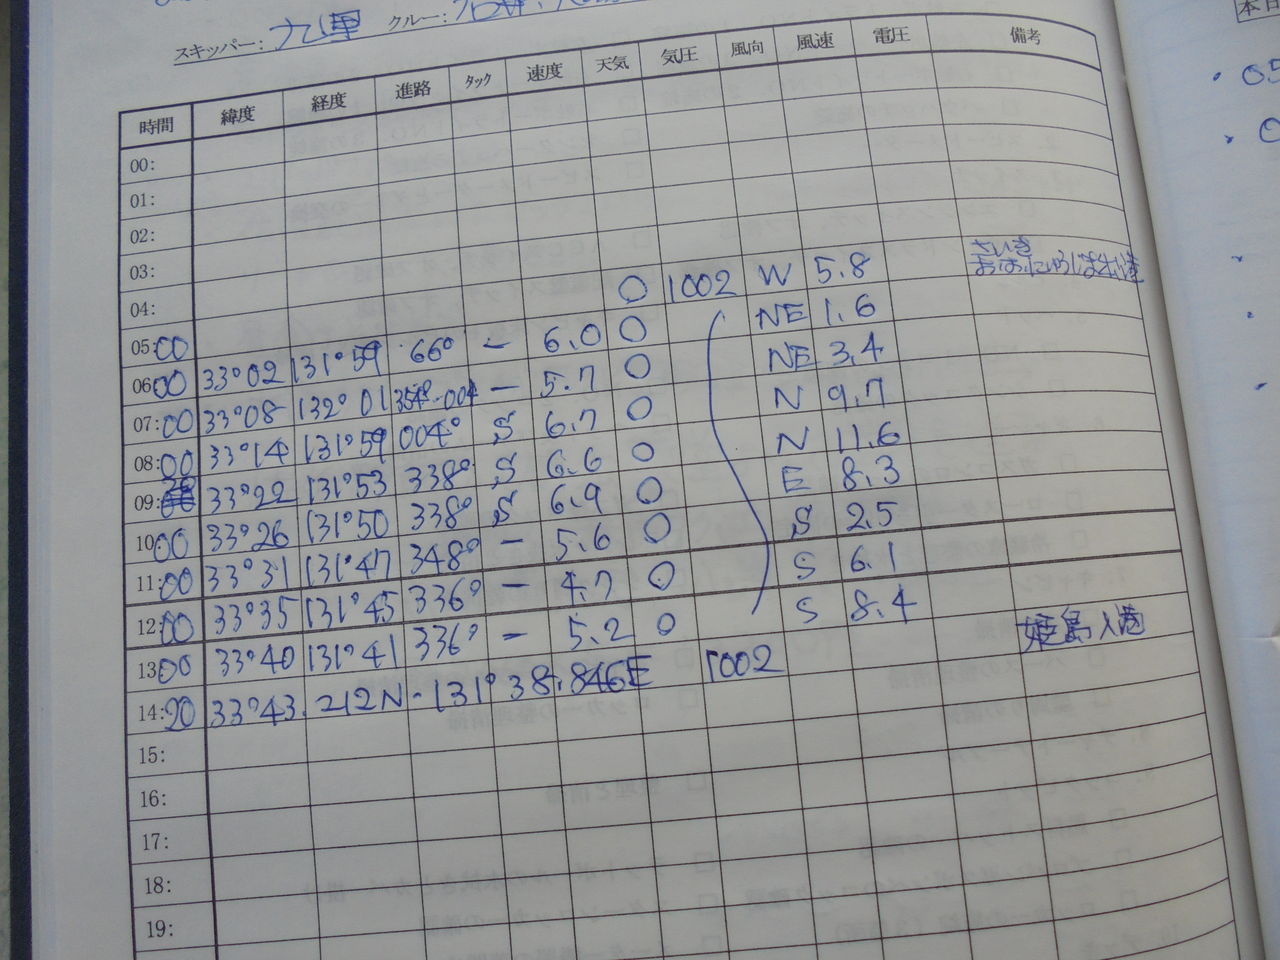 スキッパー: 九里 クルー:
時間 緯度 経度 進路 タック 速度 天気 気圧 風向 風速 電圧 備考
00:
01:
02:
03:
04:
05:00 〇 1002 W 5.8 さいき
06:00 33°02 131°59 66° — 6.0 〇 NE 1.6
07:00 33°08 132°01 354°-004 — 5.7 〇 NE 3.4
08:00 33°14 131°59 004° S 6.7 〇 N 9.7
09: 33°22 131°53 338° S 6.6 〇 N 11.6
10:00 33°26 131°50 338° S 6.9 〇 E 8.3
11:00 33°31 131°47 348° — 5.6 〇 S 2.5
12:00 33°35 131°45 336° — 4.7 〇 S 6.1
13:00 33°40 131°41 336° — 5.2 〇 S 8.4
14:20 33°43.212N - 131°38.846E 1002 姫島入港
15:
16:
17:
18:
19:
本日